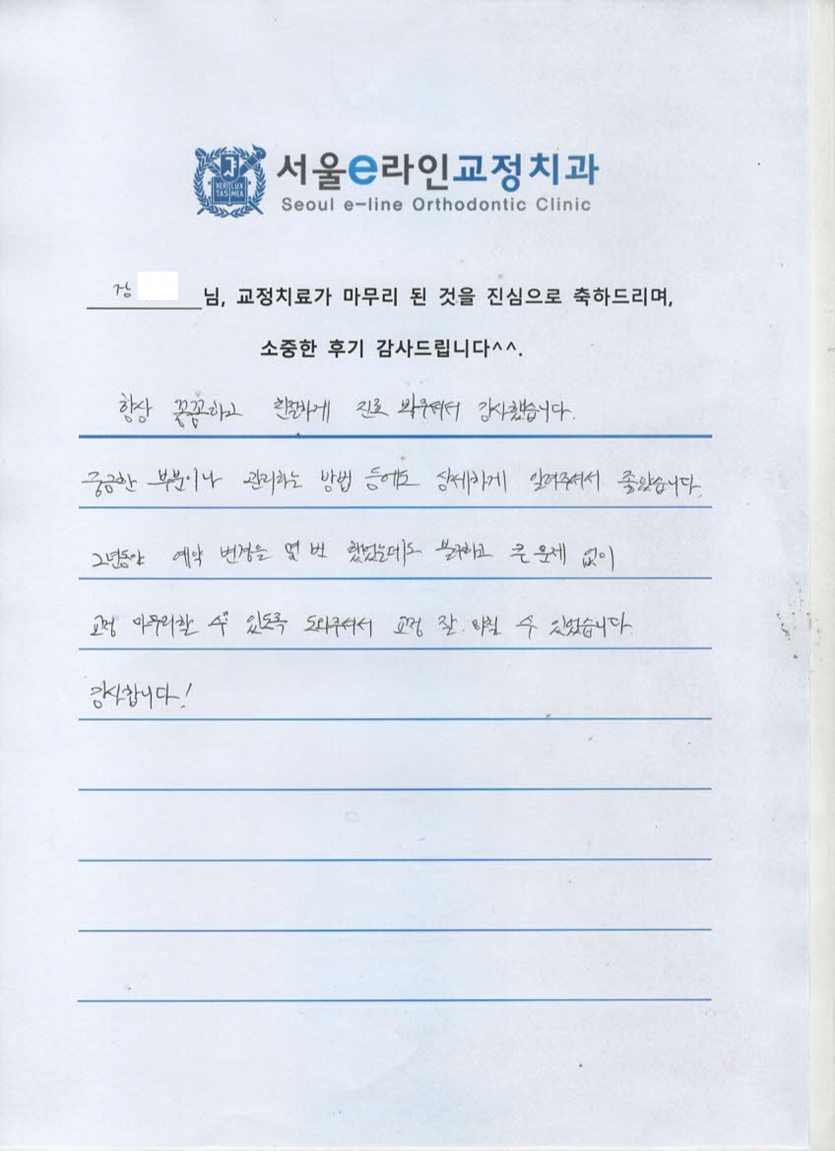 VERI LUX TAS MEA
서울e라인교정치과
Seoul e-line Orthodontic Clinic
님, 교정치료가 마무리 된 것을 진심으로 축하드리며,
소중한 후기 감사드립니다^^.
항상 꼼꼼하고 친절하게 진료 봐주셔서 감사했습니다.
궁금한 부분이나 관리하는 방법 등에도 상세하게 알려주셔서 좋았습니다.
2년동안 예약 변경을 몇 번 했었는데도 불구하고 큰 문제 없이
교정 마무리할 수 있도록 도와주셔서 교정 잘 마칠 수 있었습니다.
감사합니다!